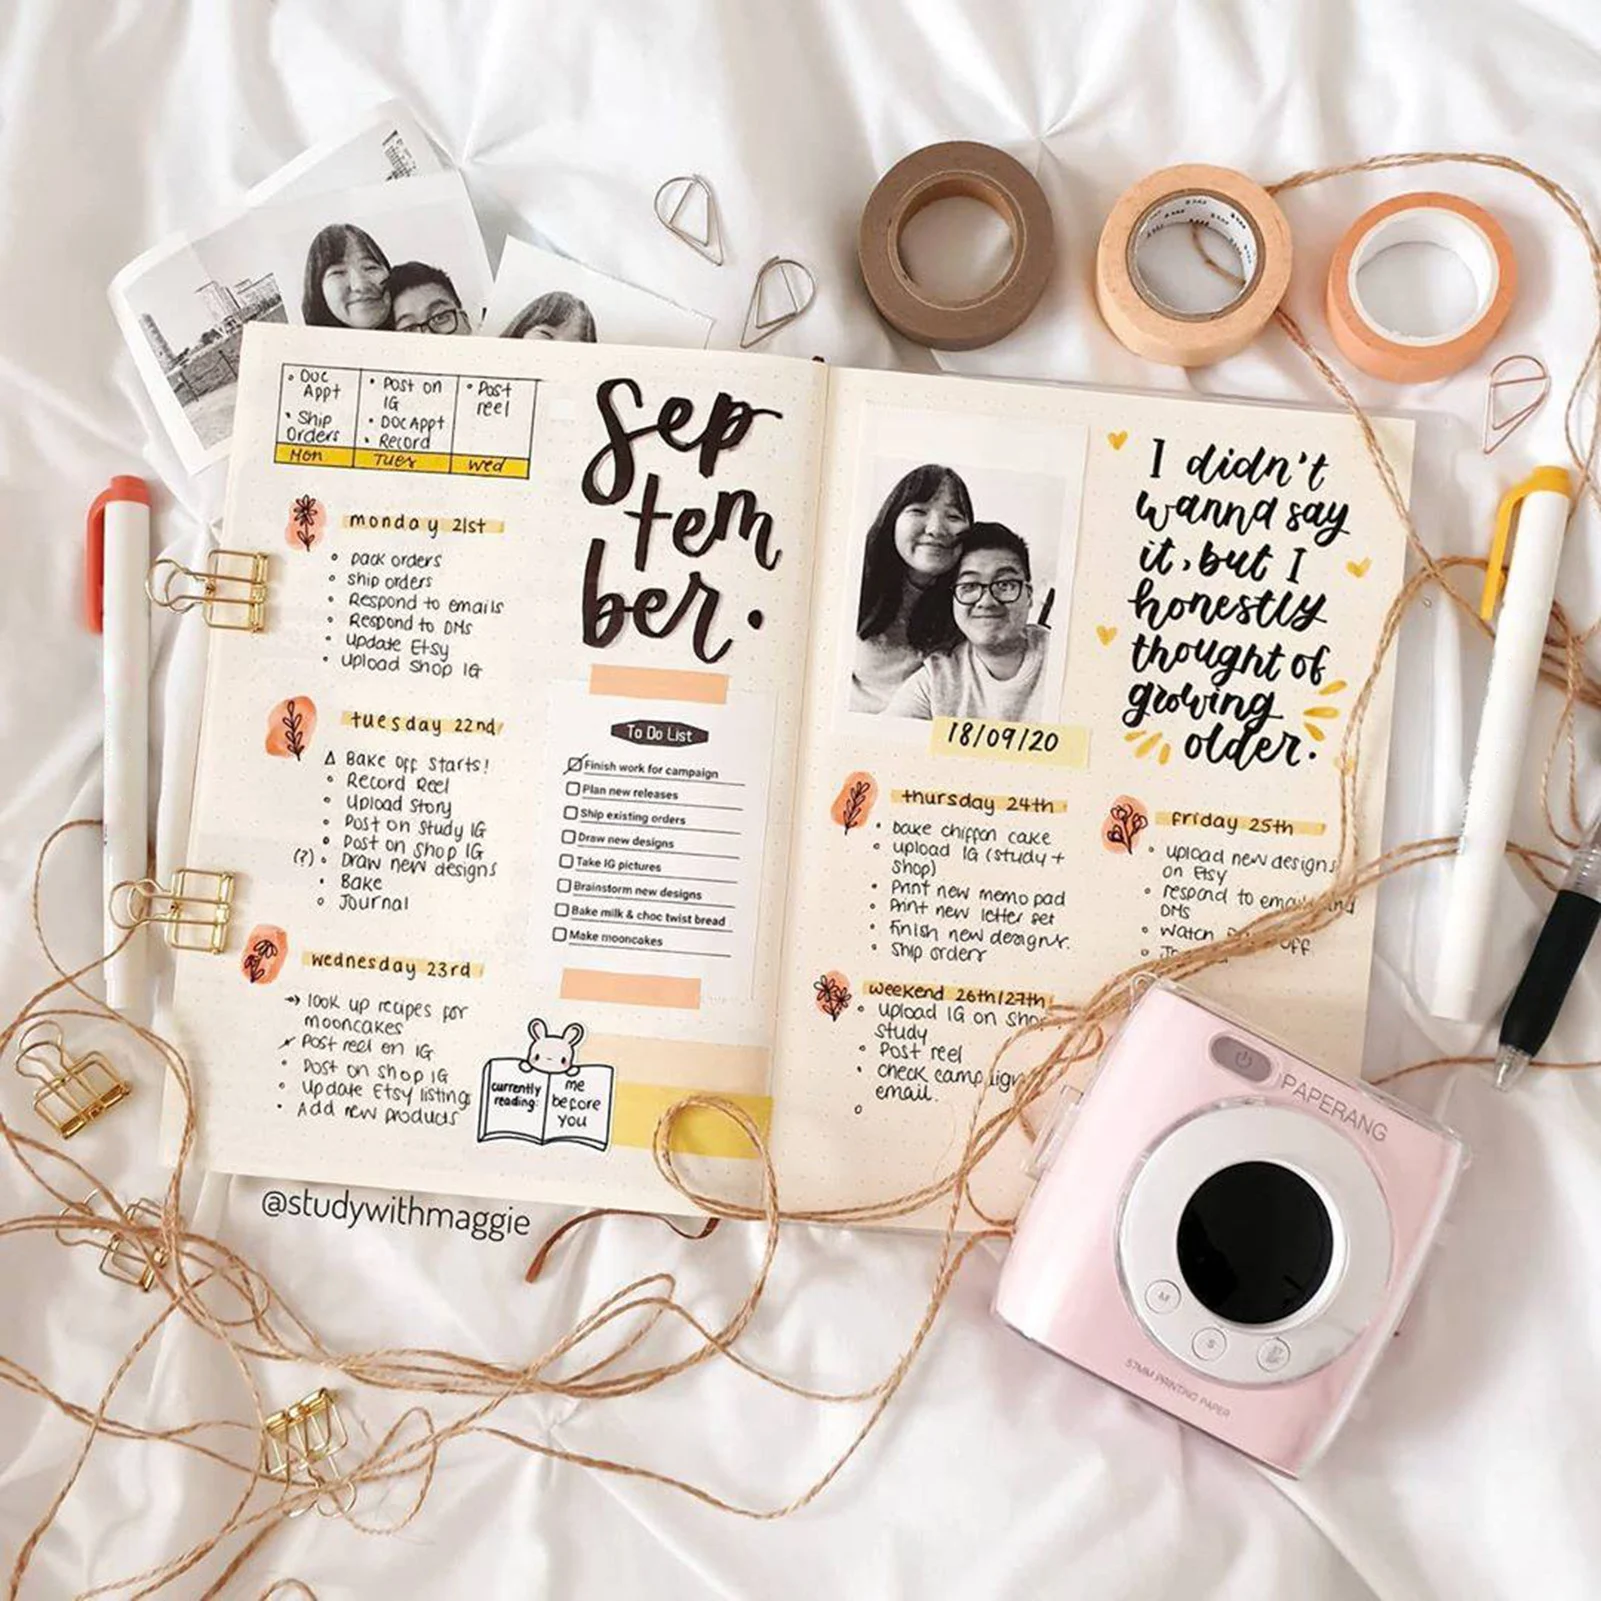 • Doc
Appt
• Ship
Orders
Mon
• Post on
IG
• Doc Appt
• Record
Tues
• Post
reel
Wed
Sep
tem
ber.
monday 21st
• pack orders
• ship orders
• Respond to emails
• Respond to DMs
• Update Etsy
• Upload Shop IG
tuesday 22nd
Δ Bake off starts!
• Record Reel
• Upload Story
• Post on Study IG
• Post on Shop IG
(?) • Draw new designs
• Bake
• Journal
wednesday 23rd
→ look up recipes for
mooncakes
• Post reel on IG
• Post on shop IG
• Update Etsy listings
• Add new products
To Do List
Finish work for campaign
Plan new releases
Ship existing orders
Draw new designs
Take IG pictures
Brainstorm new designs
Bake milk & choc twist bread
Make mooncakes
currently
reading:
me
before
you
@studywithmaggie
18/09/20
I didn't
wanna say
it, but I
honestly
thought of
growing
older.
thursday 24th
• bake chiffon cake
• upload IG (study +
shop)
• Print new memo pad
• Print new letter set
• Finish new designs.
• Ship orders
friday 25th
• upload new designs
on Etsy
• respond to emails and
DMs
• watch Off
weekend 26th/27th
• Upload IG on Shop
study
• Post reel
• check campaign
email.
PAPERANG
M
S
57MM PRINTING PAPER